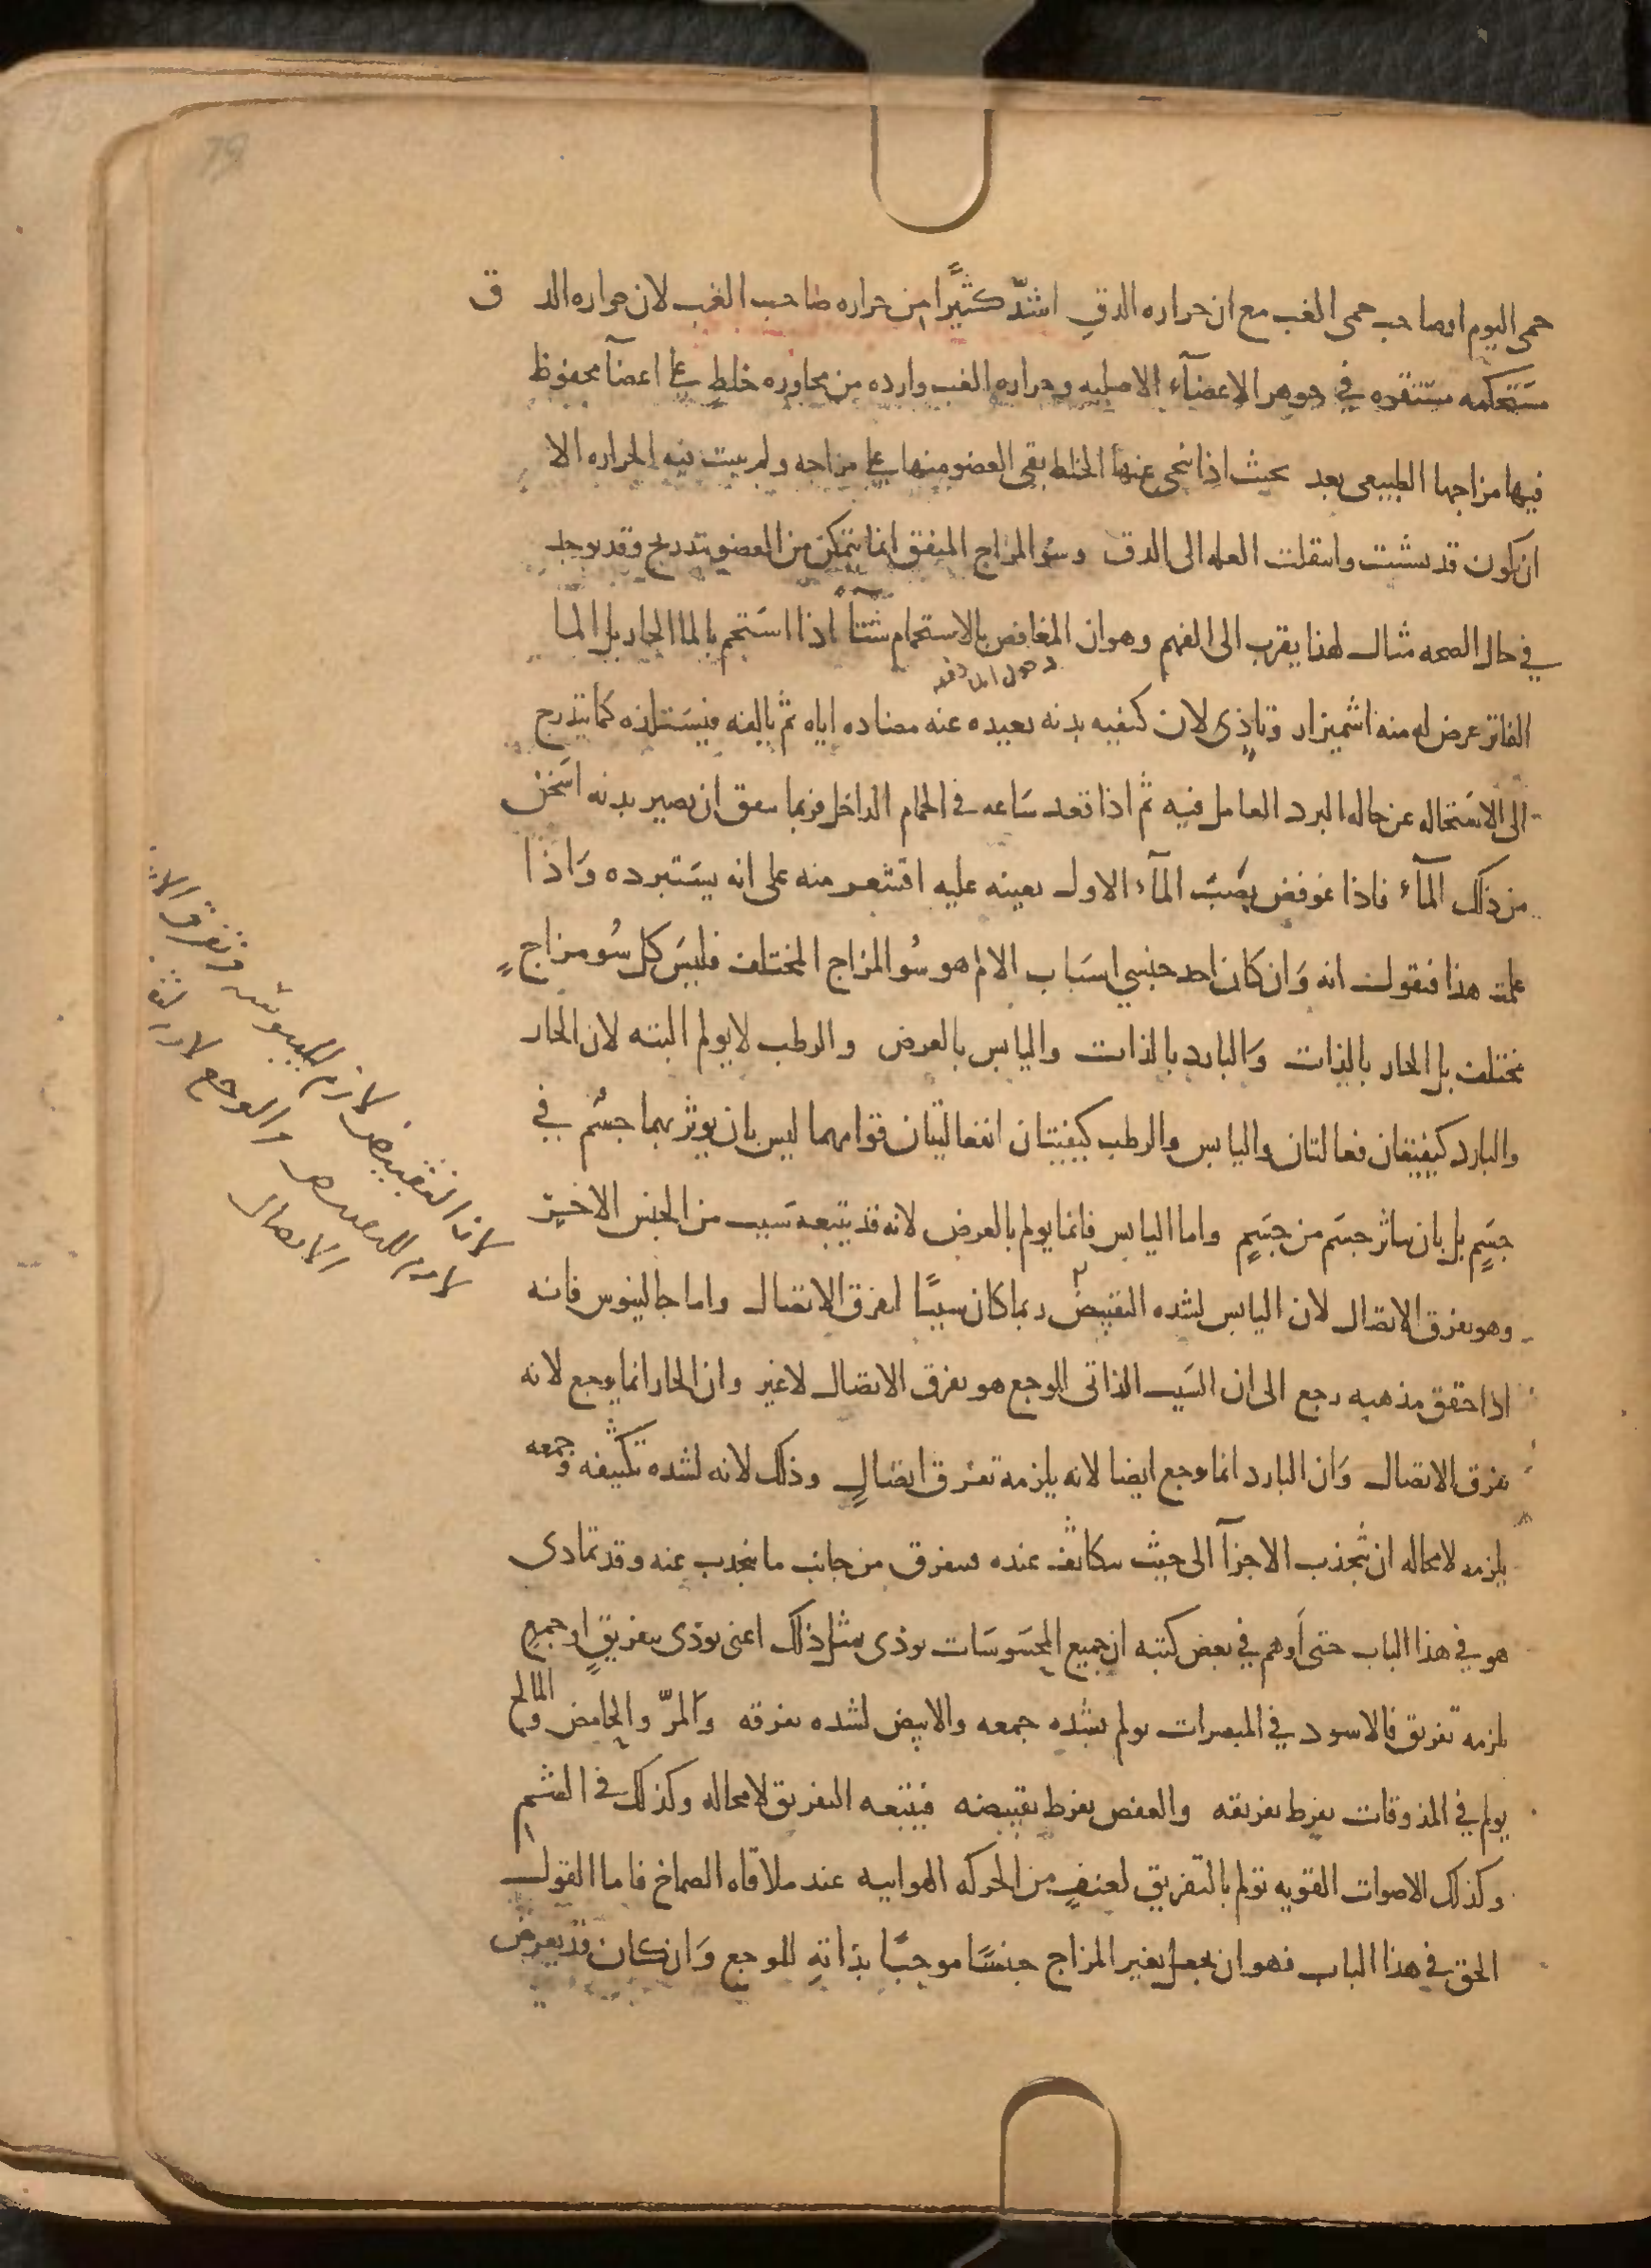 79
حمى اليوم اوصاحب حمى الغب مع ان حراره الدقِ اشدّ كثيرًا من حراره صاحب الغب لان حراره الدق
مستحكمه مستقره في جوهر الاعضآء الاصليه وحراره الغب وارده من مجاوره خلطٍ على اعضآ محفوظ
فيها مزاجها الطبيعى بعد بحيث اذا نحى عنها الخلط بقى العضو منها على مزاجه ولم يثبت فيه الحراره الا
ان يكون قد تشبثت وانتقلت العله الى الدق وسُو المزاج المتفق انما يتمكن من العضو بتدريج وقد يوجد
في حال الصحه مثال لهذا يقرب الى الفهم وهو ان المغافص بالاستحمام شتآ اذا استحم بالما الحار بل الما
الفاتر عرض له منه اشميزاز وتاذى لان كيفيه بدنه بعيده عنه مضاده اياه ثم يالفه فيستلذه كما يتدرج
الى الاستحاله عن حاله البرد العامل فيه ثم اذا قعد ساعه في الحمام الداخل فربما يتفق ان يصير بدنه اسخن
من ذلك المآء فاذا غوفص بصَب المآء الاول بعينه عليه اقشعر منه على انه يستبرده وَاذا
علمت هذا فنقول انه وَان كان احد جنسي اسباب الالم هو سُو المزاج المختلف فليس كل سُو مزاجٍ
مختلف بل الحار بالذات وَالبارد بالذات واليابس بالعرض والرطب لا يولم البته لان الحار
والبارد كيفيتان فعالتان واليابس والرطب كيفيتان انفعاليتان قوامهما ليس بان يوثر بهما جسْم في
جسَمٍ بل بان يتاثر جسَم من جسَمٍ واما اليابس فانما يولم بالعرض لانه قد يتبعه سَبب من الجنس الاخير
وهو تفرق الاتصال لان اليابس لشده التقبيض ربما كان سببًا لتفرق الاتصال واما جالينوس فانه
اذا حقق مذهبه رجع الى ان السَبب الذاتى للوجع هو تفرق الاتصال لا غير وان الحار انما يوجع لانه
يفرق الاتصال وَان البارد انما يوجع ايضا لانه يلزمه تفرق اتصالٍ وذلك لانه لشده تكثيفه وجمعه
يلزمه لا محاله ان تنجذب الاجزآ الى حيث يتكاثف عنده فيتفرق من جانب ما ينجذب عنه وقد تمادى
هو في هذا الباب حتى اَوهم في بعض كتبه ان جميع المحسَوسَات توذى بمثل ذلك اعنى توذى بتفريقٍ او جمعٍ
يلزمه تفريق فالاسود في المبصرات يولم بشده جمعه والابيض لشده تفرقه وَالمرّ والحامض والمالح
يولم في المذوقات بفرط تفريقه والعفص بفرط تقبيضه فيتبعه التفريق لا محاله وكذلك في الشم
وكذلك الاصوات القويه تولم بالتفريق لعنفٍ من الحركه الهواييه عند ملاقاه الصماخ فاما القول
الحق في هذا الباب فهو ان يجعل تغير المزاج جنسًا موجبًا بذاتهِ للوجع وَان كان قد يعرض
لان التقبيض لازم لليبوسه وتفرق
لازم للتقبيض والوجع لازم
الاتصال